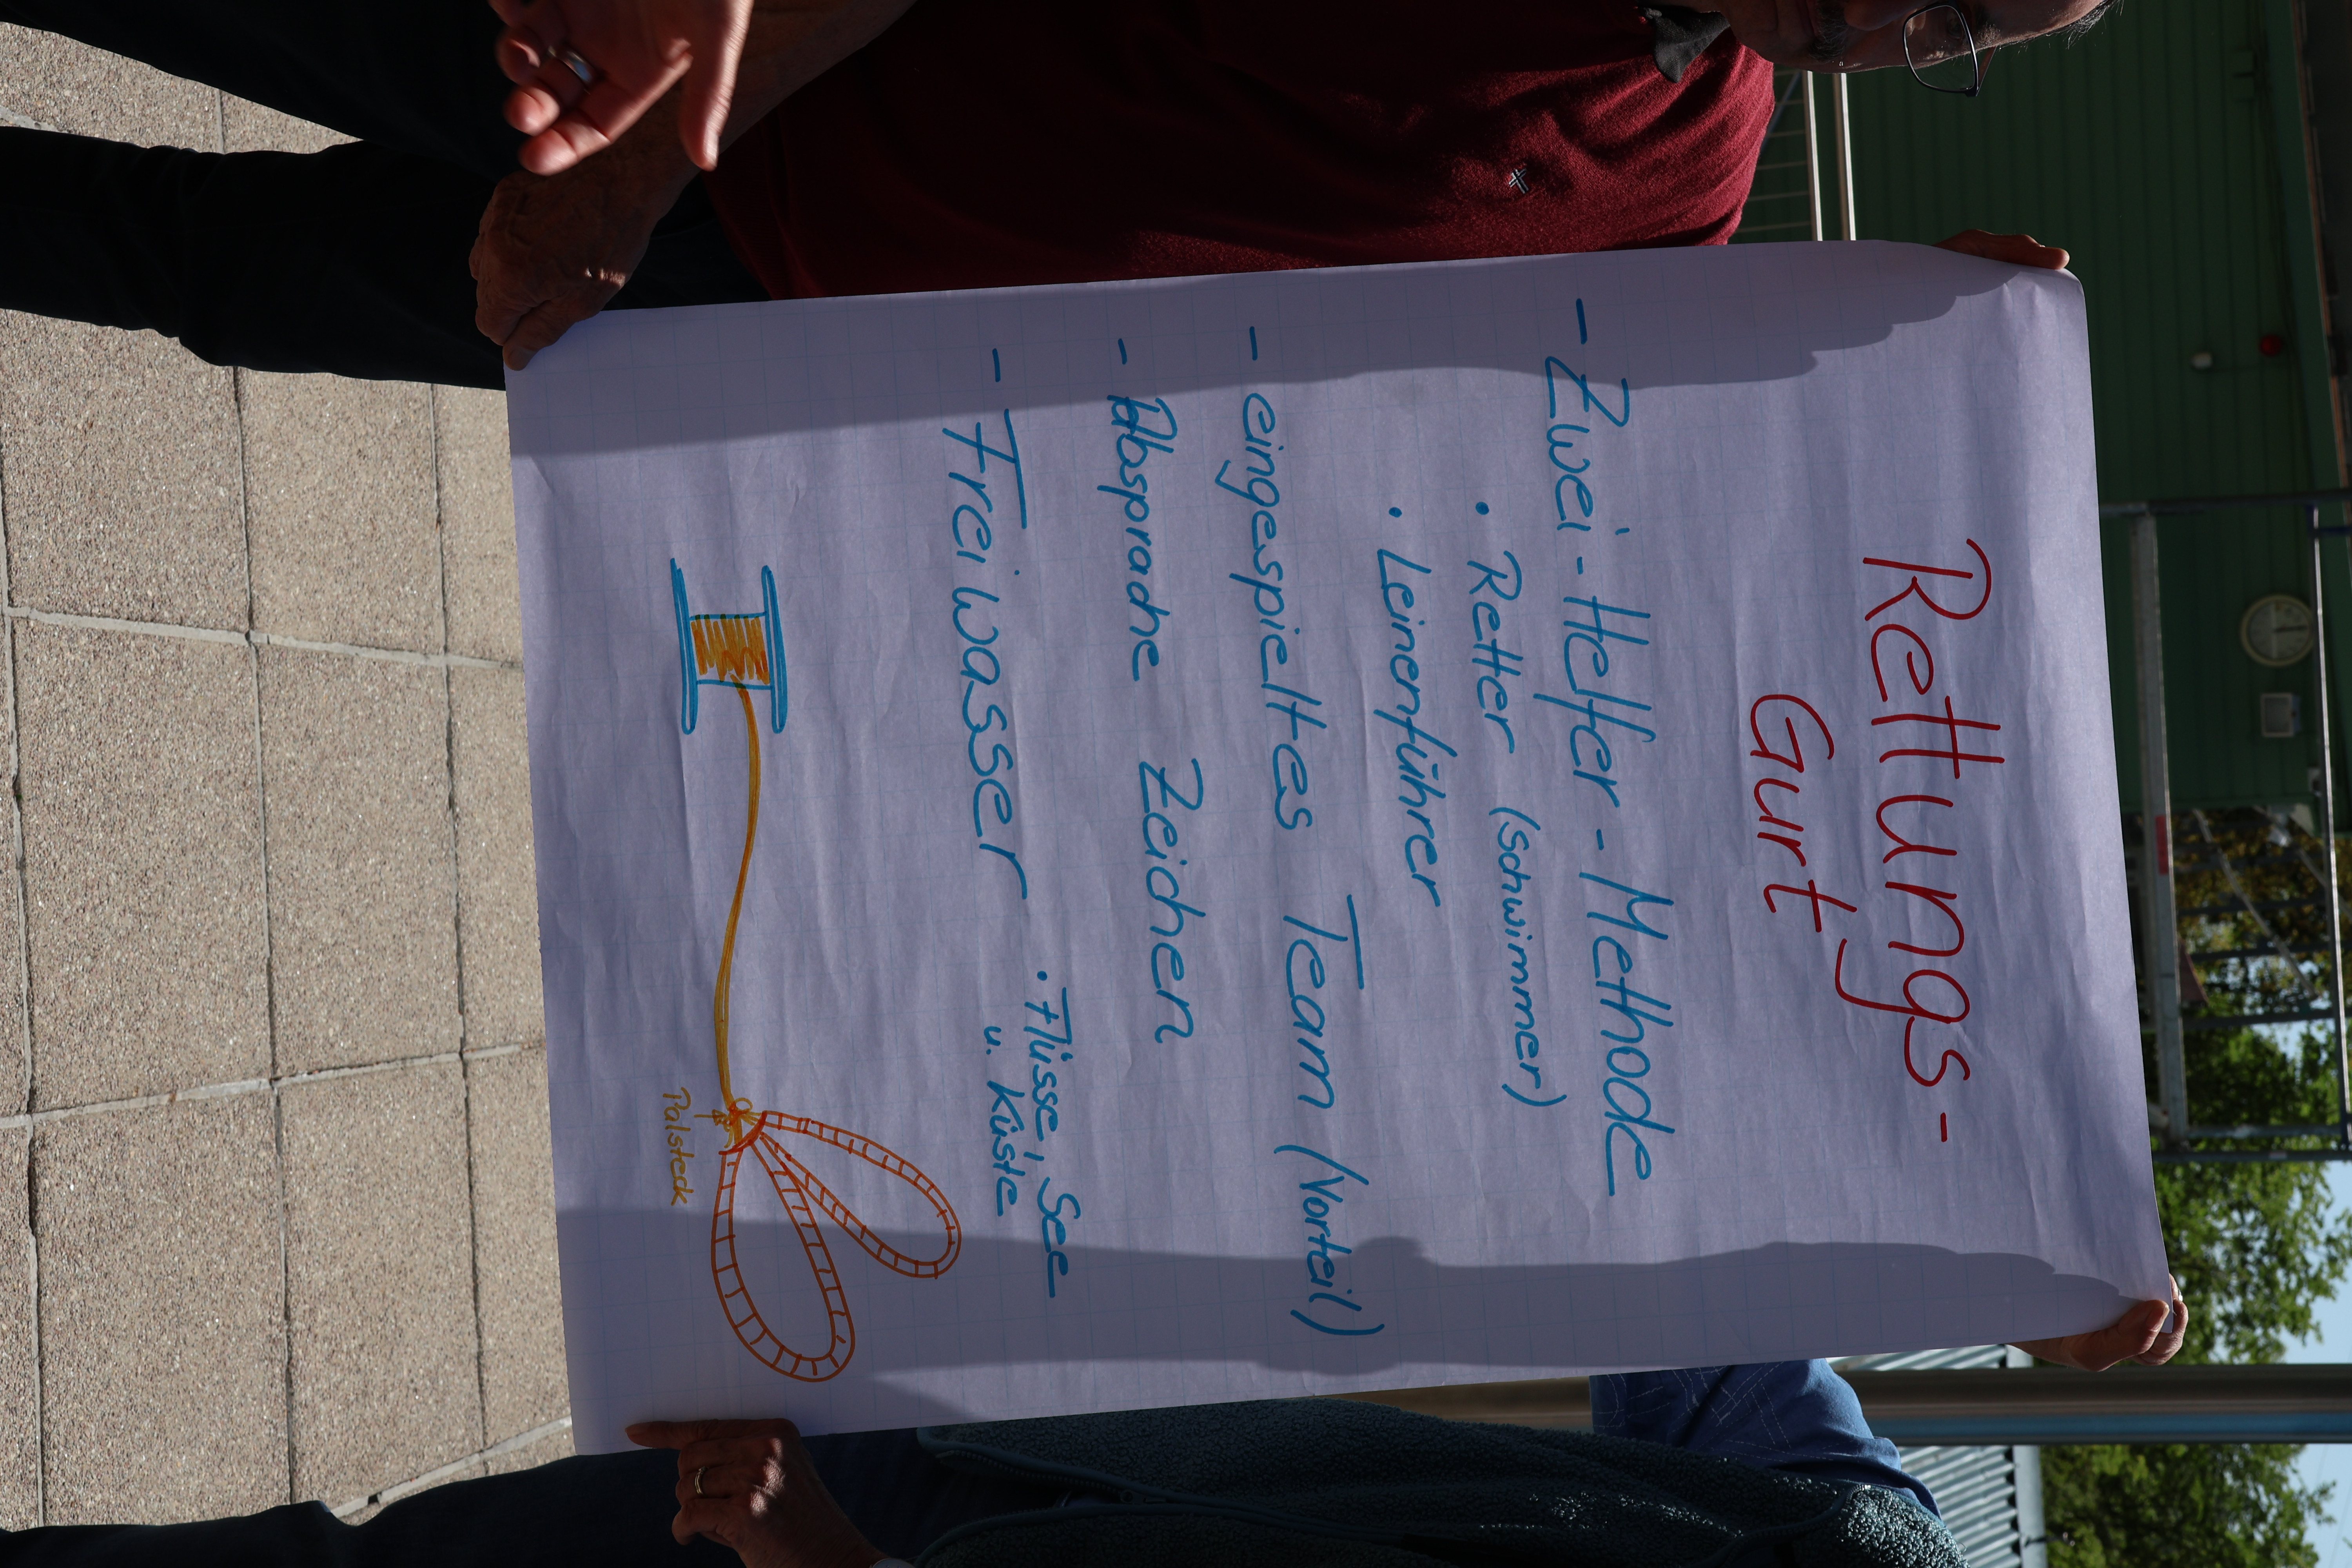 Rettungs-
Gurt
- Zwei-Helfer-Methode
• Retter (Schwimmer)
• Leinenführer
- eingespieltes Team (Vorteil)
- Absprache Zeichen
- Freiwasser
• Flüsse, See
u. Küste
Palsteck